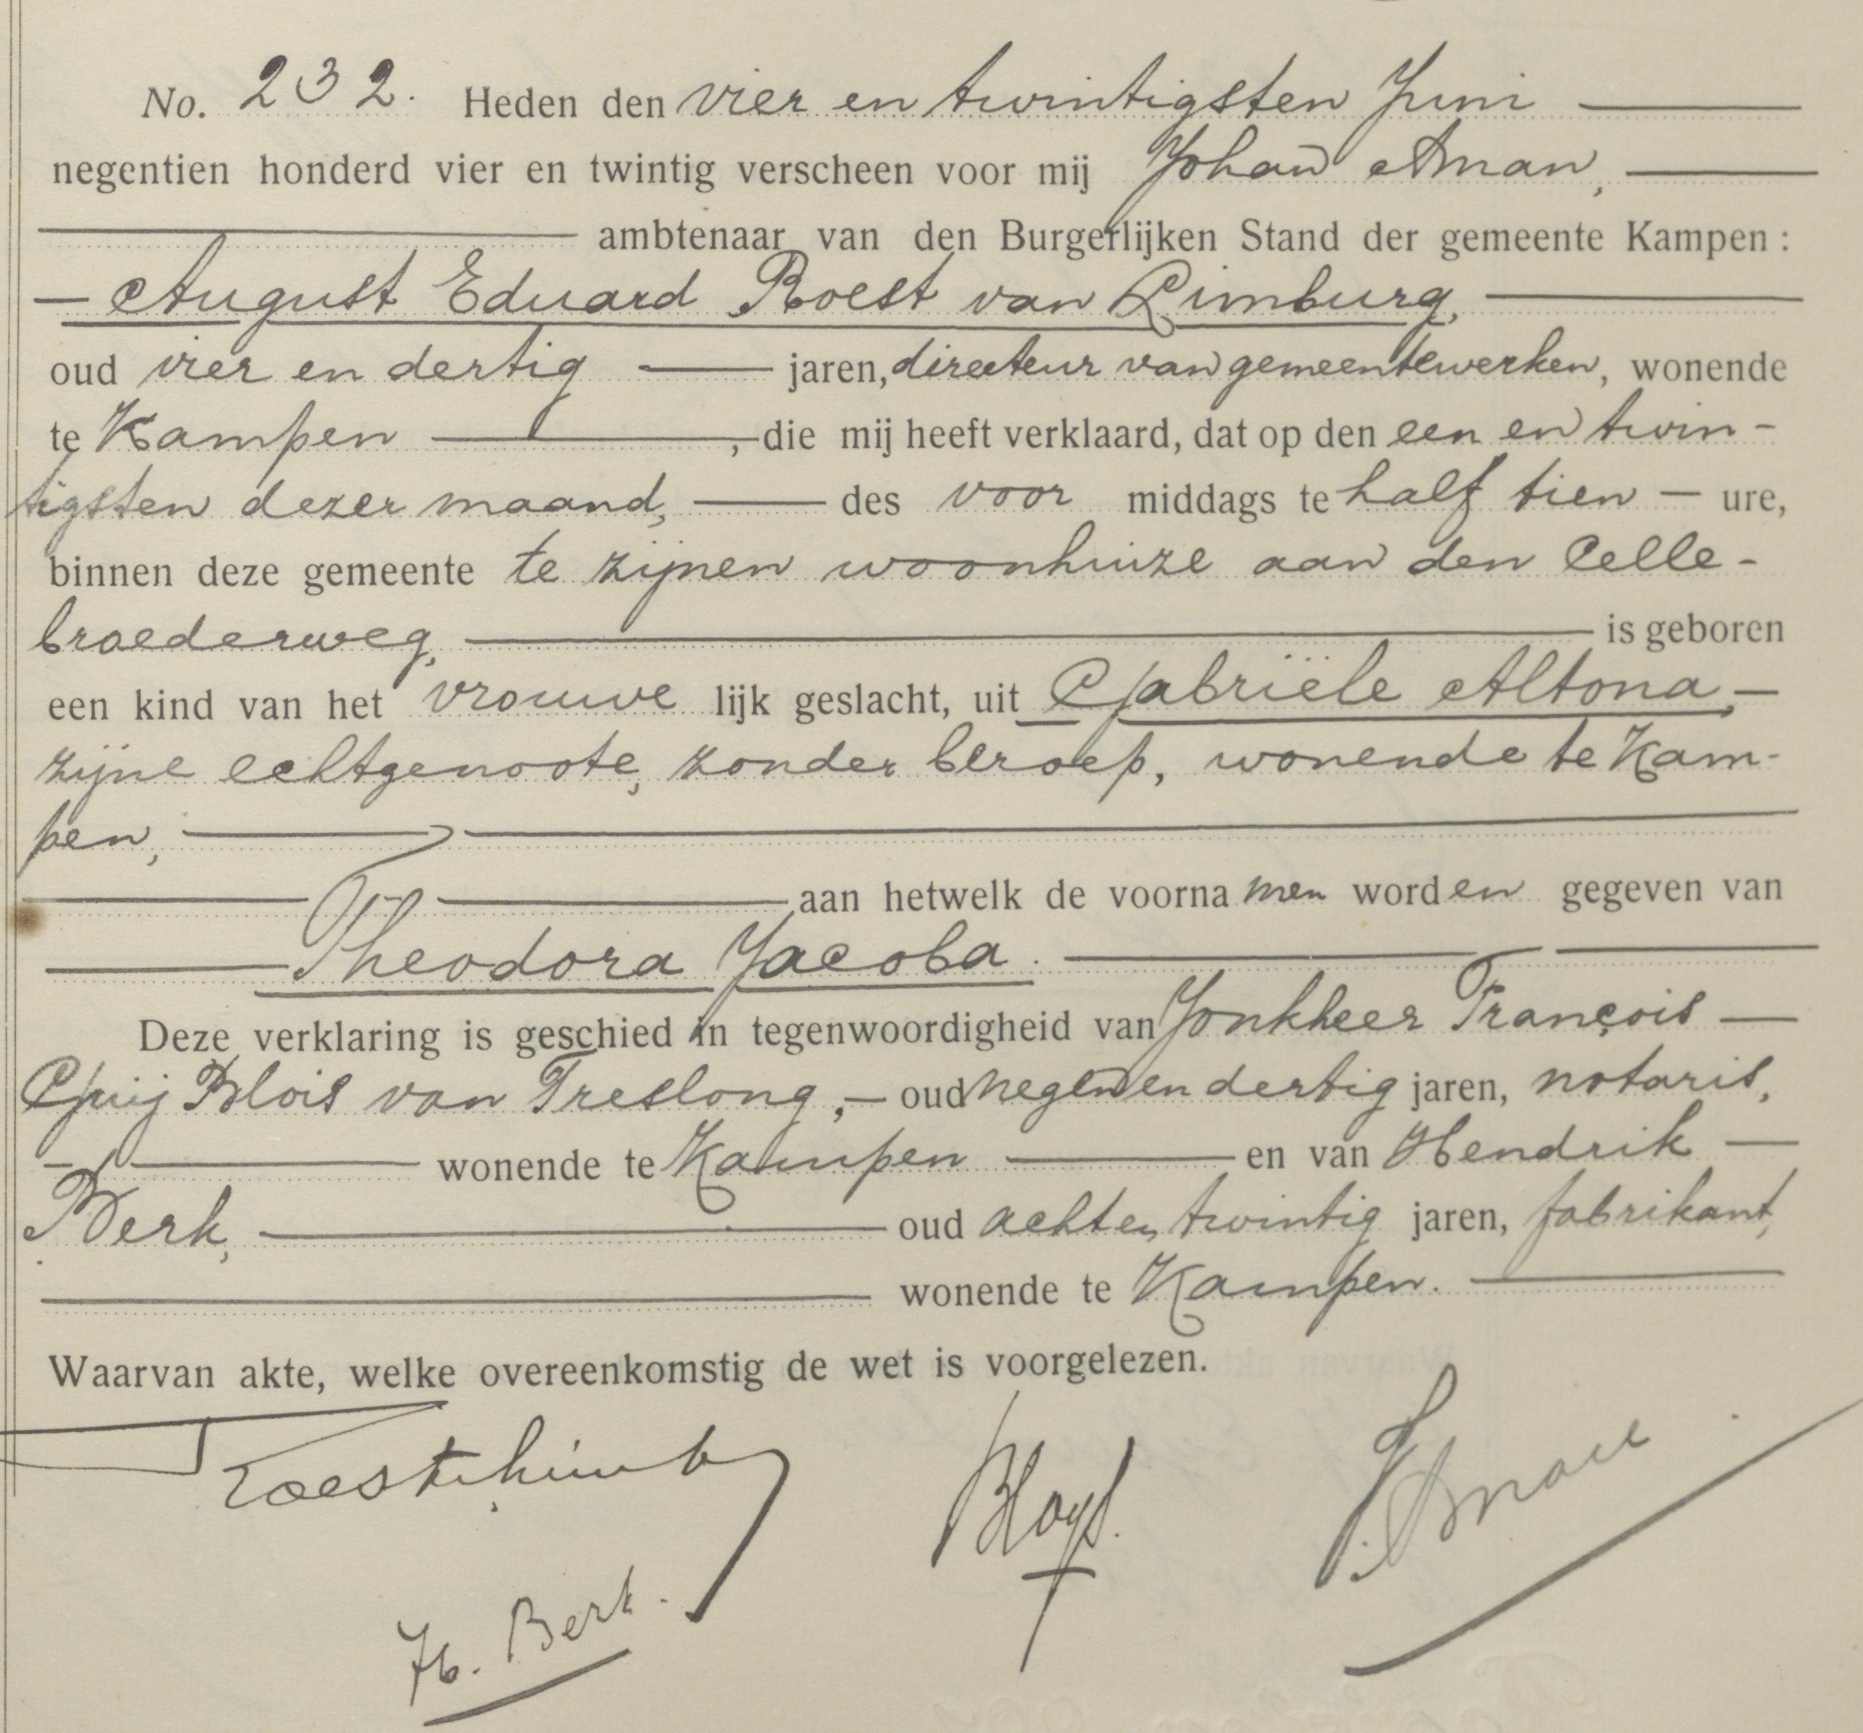 No. 232. Heden den vier en twintigsten Juni
negentien honderd vier en twintig verscheen voor mij Johan Aman,
ambtenaar van den Burgerlijken Stand der gemeente Kampen:
August Eduard Roest van Limburg,
oud vier en dertig jaren, directeur van gemeentewerken, wonende
te Kampen, die mij heeft verklaard, dat op den een en twin-
tigsten dezer maand, des voor middags te half tien ure,
binnen deze gemeente te zijnen woonhuize aan den Celle-
broederweg, is geboren
een kind van het vrouwe lijk geslacht, uit Gabriële Altona,
zijne echtgenoote, zonder beroep, wonende te Kam-
pen,
aan hetwelk de voorna men worden gegeven van
Theodora Jacoba.
Deze verklaring is geschied in tegenwoordigheid van Jonkheer François
Guij Blois van Treslong, oud negen en dertig jaren, notaris,
wonende te Kampen en van Hendrik
Berk, oud acht en twintig jaren, fabrikant,
wonende te Kampen.
Waarvan akte, welke overeenkomstig de wet is voorgelezen.
J. Aman
H. Berk.